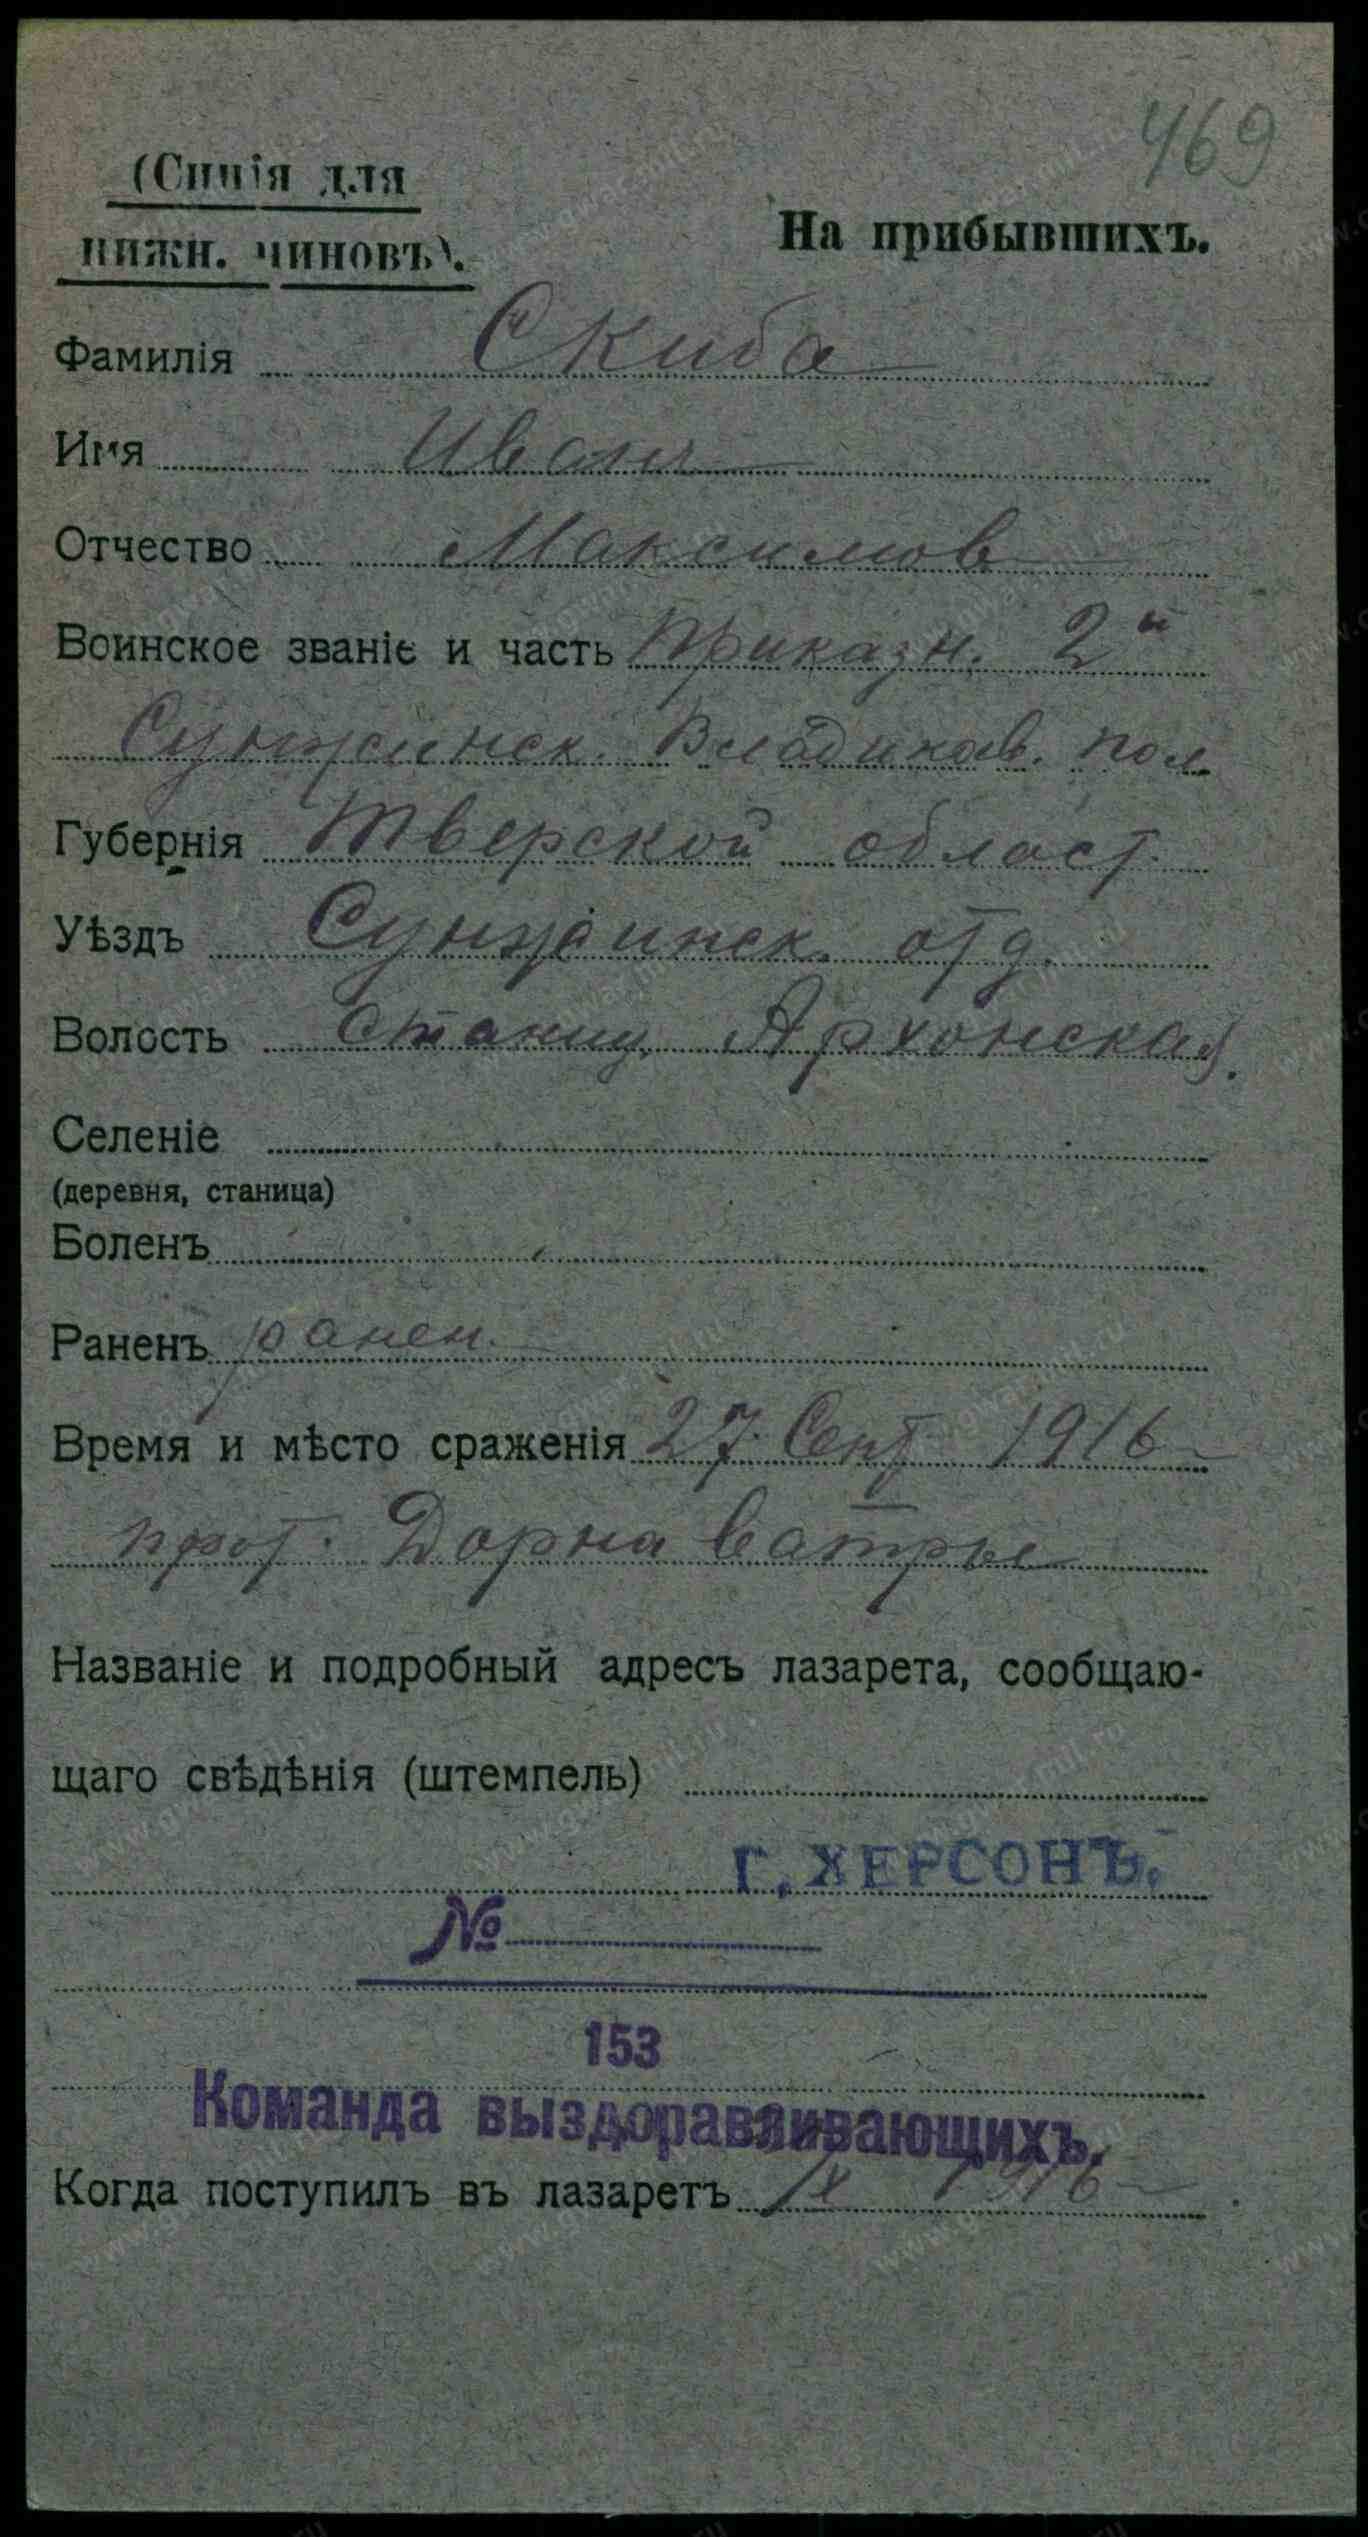 469
(Синія для
нижн. чиновъ).
На прибывшихъ.
Фамилія Скиба
Имя Иванъ
Отчество Максимов
Воинское званіе и часть приказн. 2й
Сунженск. Владикав. пол
Губернія Тверской област.
Уѣздъ Сунженск. отд.
Волость станиц. Архонская.
Селеніе
(деревня, станица)
Боленъ
Раненъ ранен.
Время и мѣсто сраженія 27. Сент 1916
Дорна Ватры
Названіе и подробный адресъ лазарета, сообщаю-
щаго свѣдѣнія (штемпель)
Г. ХЕРСОНЪ.
№
153
Команда выздоравливающихъ.
Когда поступилъ въ лазаретъ 1916